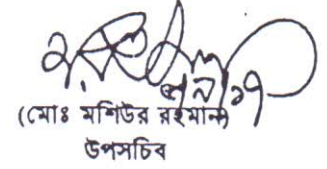 (মোঃ মশিউর রহমান)
উপসচিব